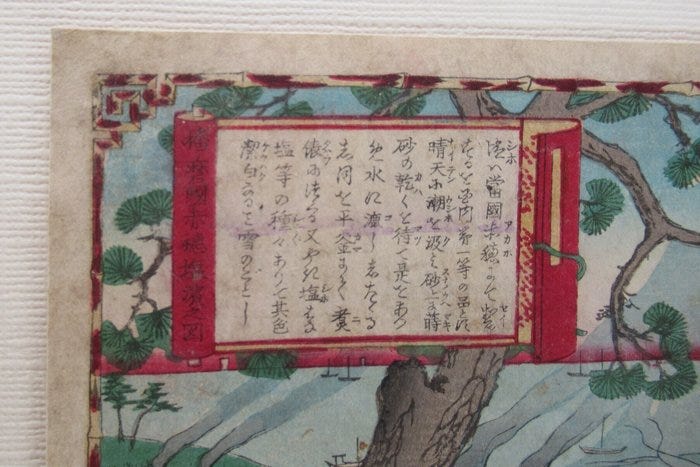 塩ハ當國赤穂にて製
するを国内第一等の品とす
晴天に潮を汲ミ砂上ニ蒔
砂の乾くを待て是をあつ
め水に漉し
を平釜にて煮
俵に 又やき塩
塩等の種々ありて其色
潔白なる事雪のごとし
播磨國赤穂塩濱之図